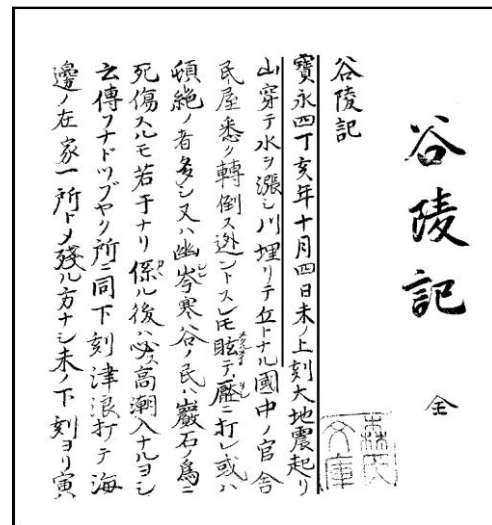 谷陵記 全
谷陵記
寶永四丁亥年十月四日未ノ上刻大地震起リ
山穿テ水ヲ漲シ川埋リテ丘トナル國中ノ官舎
民屋悉ク轉倒ス迯ントスレ𪜈眩テ壓ニ打レ或ハ
頓絶ノ者多シ又ハ幽岑寒谷ノ民ハ巖石ノ爲ニ
死傷スルモ若干ナリ係ル後ハ必ス高潮入ナルヨシ
云傳フナドツブヤク所ニ同下刻津浪打テ海
邊ノ在家一所トメ殘ル方ナシ未ノ下刻ヨリ寅ノ
文庫